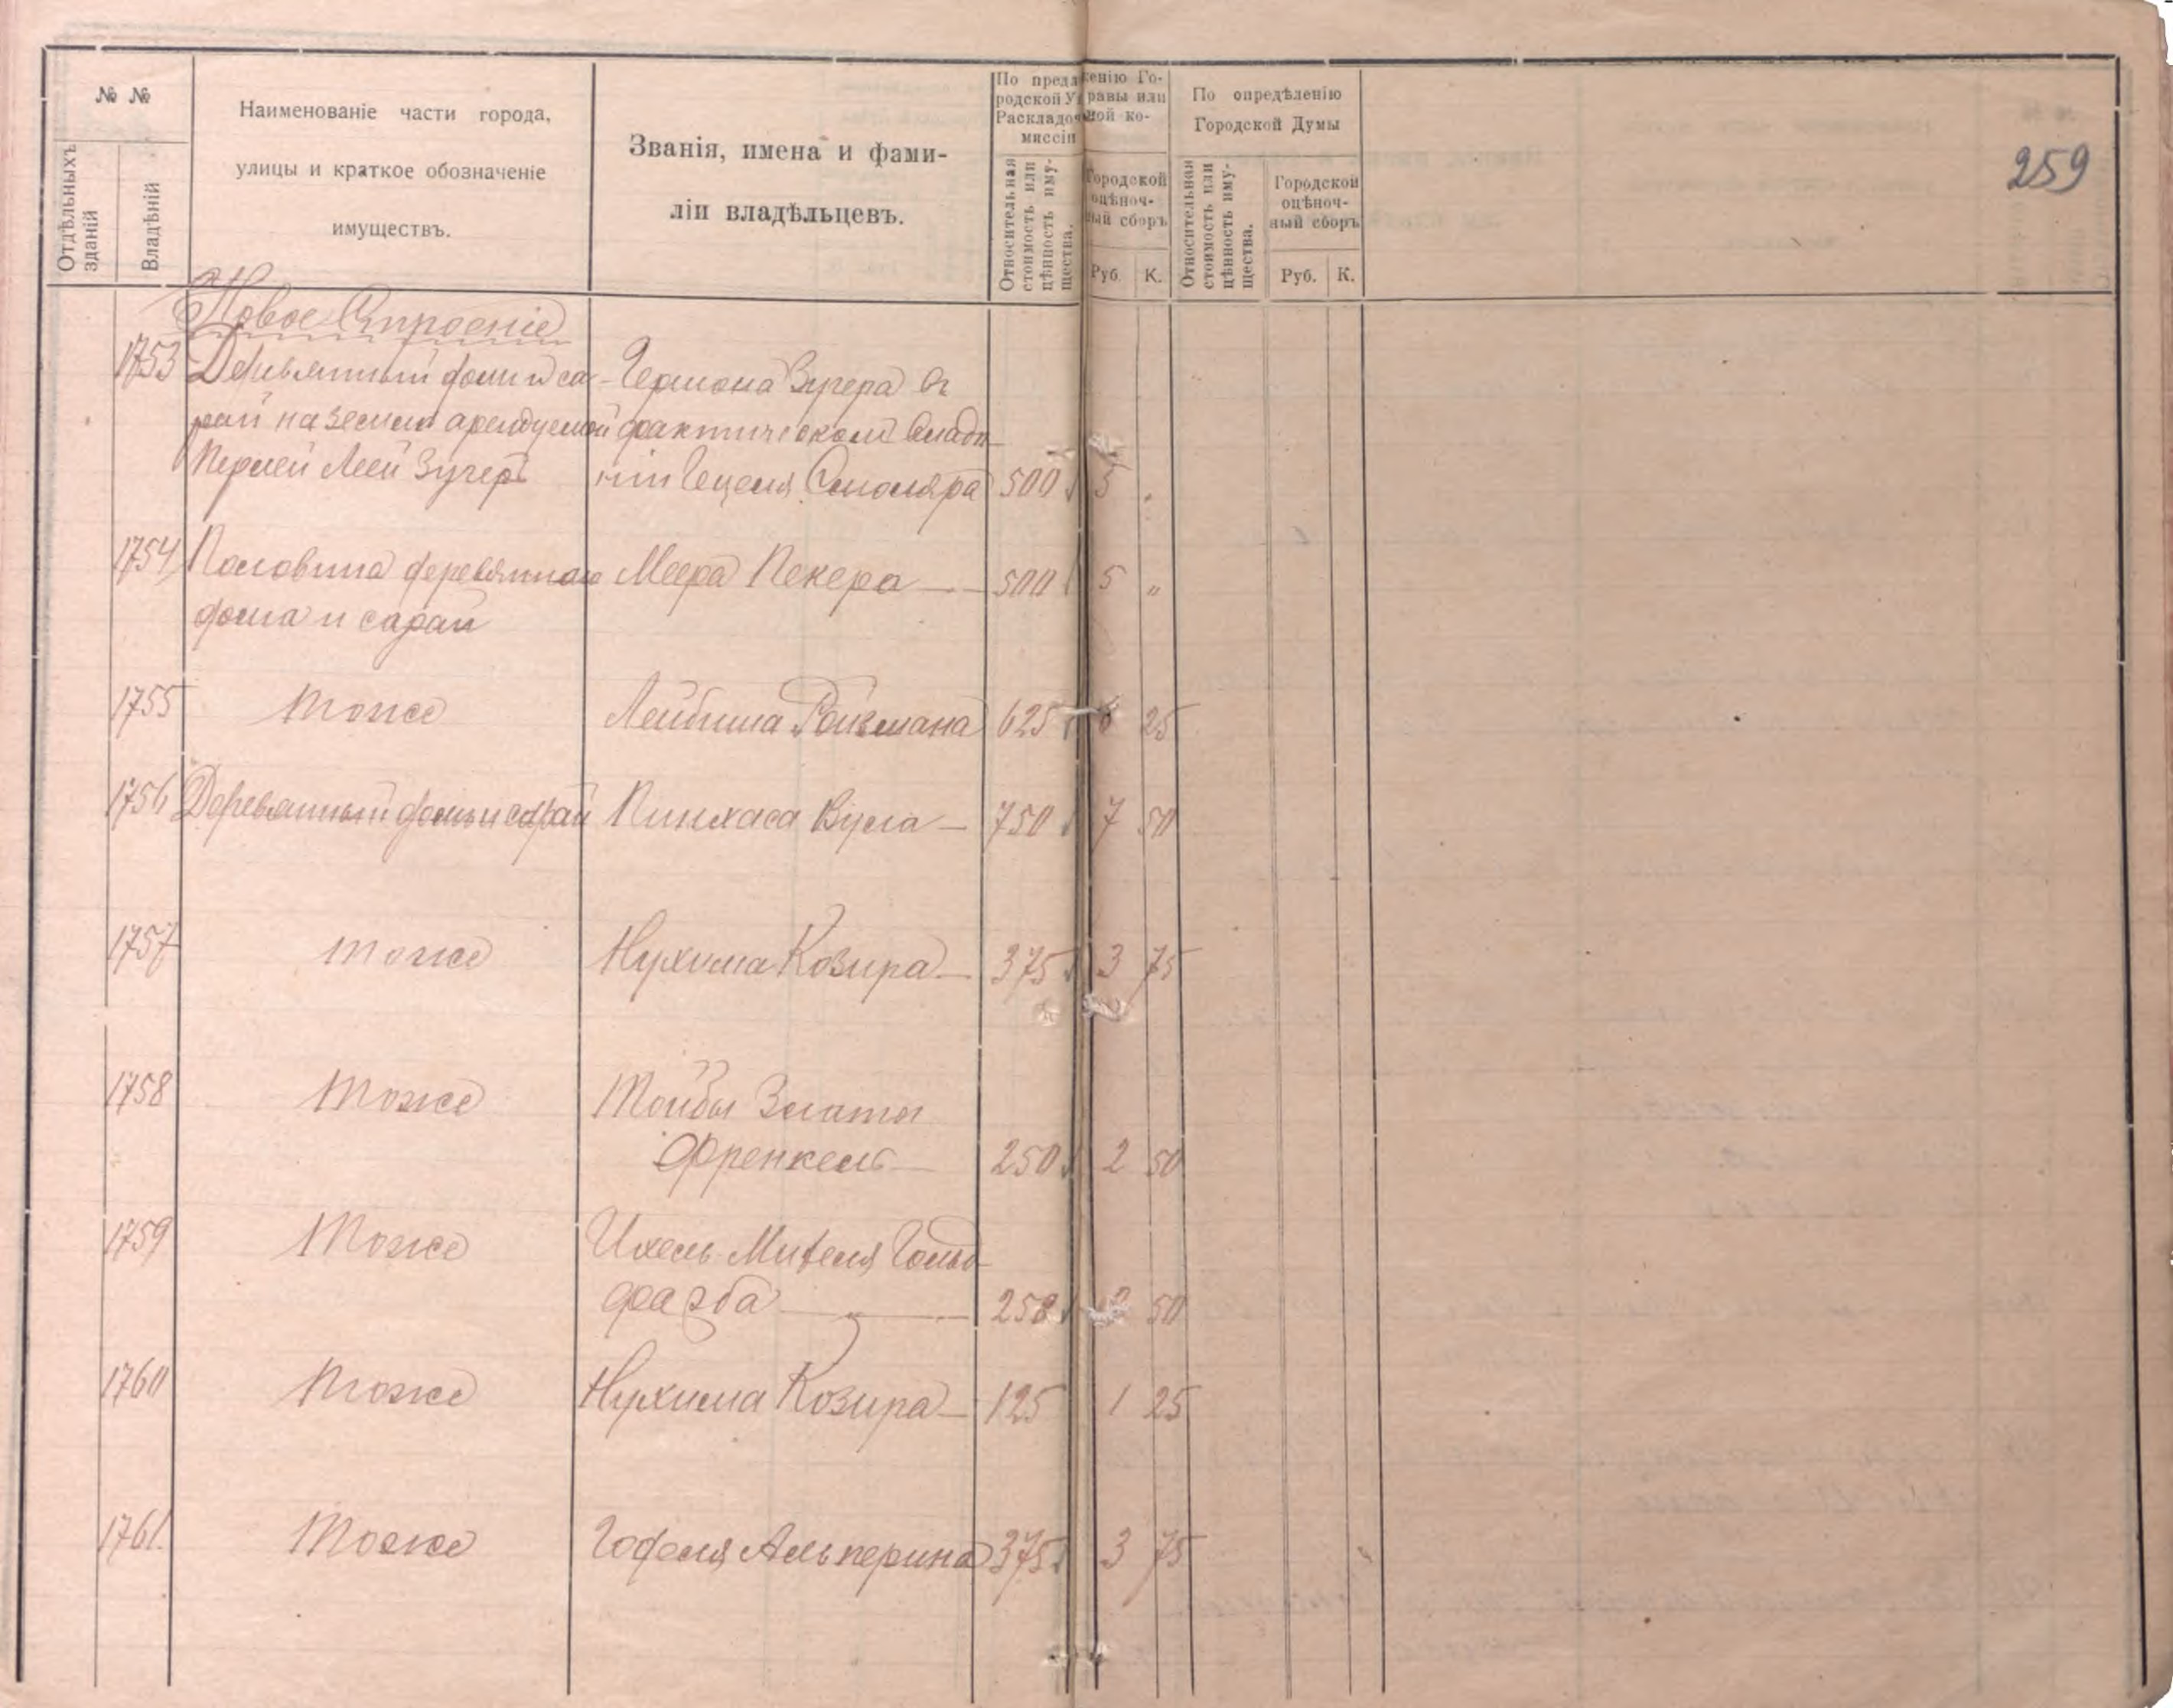 № №
Отдѣльныхъ зданій
Владѣній
Наименованіе части города,
улицы и краткое обозначеніе
имуществъ.
Званія, имена и фами-
ліи владѣльцевъ.
По предл
женію Го-
родской У
равы или
Раскладо
ной ко-
миссіи
Относительная стоимость или цѣнность иму- щества.
Городской
оцѣноч-
ный сборъ
Руб. К.
По опредѣленію
Городской Думы
Относительная стоимость или цѣнность иму- щества.
Городской
оцѣноч-
ный сборъ
Руб. К.
259
Новое Строеніе
1753 Деревянный домъ и са- Гершона Зугера въ
рай на земли арендуемой фактическом владѣ-
Перлей Леей Зугеръ ніи Гецеля Столяра 500 5 „
1754 Половина деревяннаго Меера Пекера 500 5 „
дома и сарай
1755 тоже Лейбиша Ройзмана 625 6 25
1756 Деревянный домъ и сарай Пинхаса Вула 750 7 50
1757 тоже Нухима Козира 375 3 75
1758 тоже Тойбы Златы
Френкель 250 2 50
1759 тоже Ихель Мителя Гольд-
фарба 250 2 50
1760 тоже Нухима Козира 125 1 25
1761 тоже Годеля Альперина 375 3 75